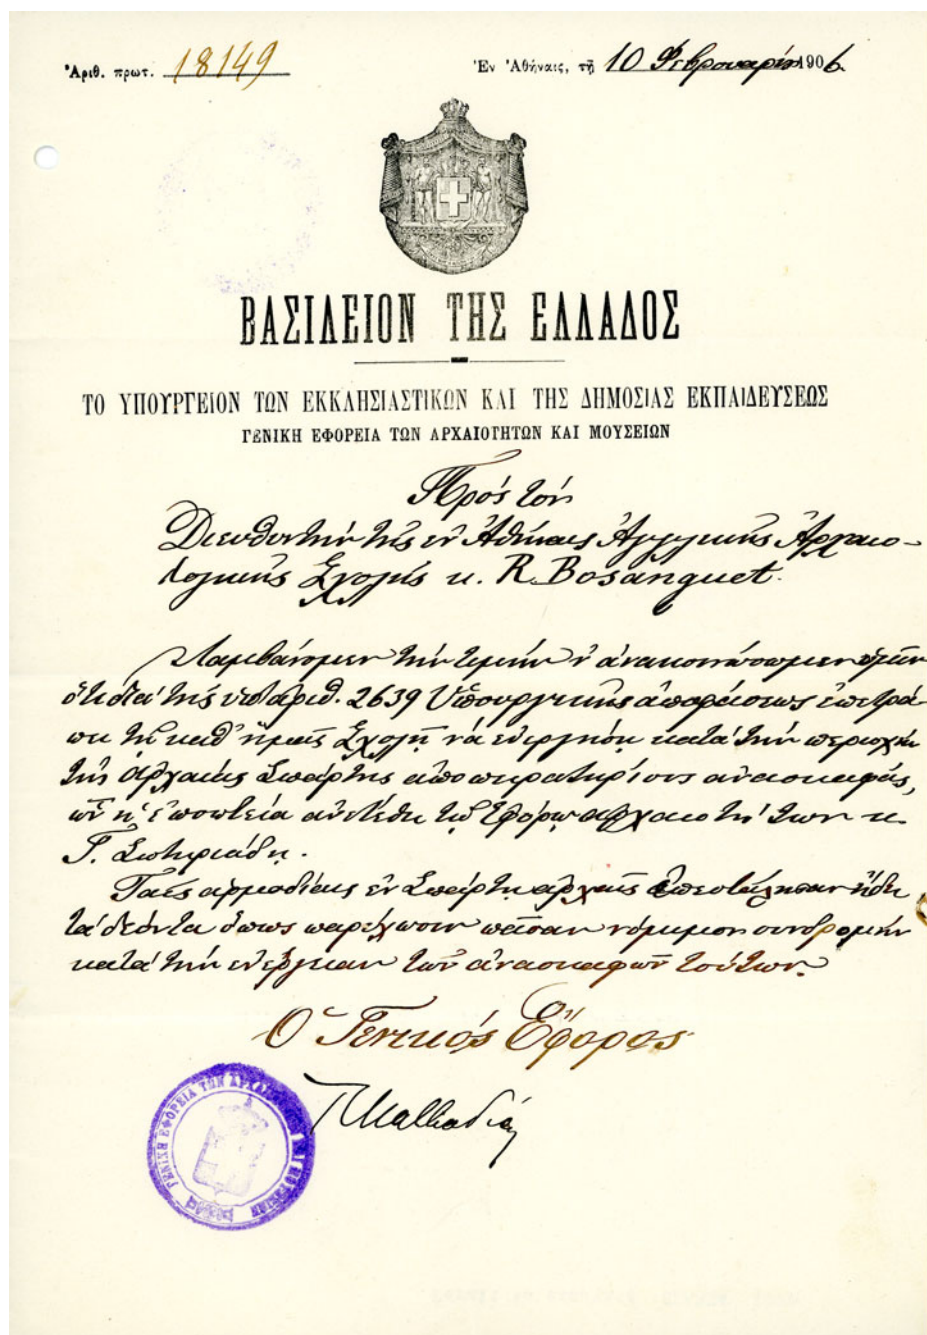 Ἀριθ. πρωτ. 18149
Ἐν Ἀθήναις, τῇ 10 Φεβρουαρίου 1906.
ΒΑΣΙΛΕΙΟΝ ΤΗΣ ΕΛΛΑΔΟΣ
ΤΟ ΥΠΟΥΡΓΕΙΟΝ ΤΩΝ ΕΚΚΛΗΣΙΑΣΤΙΚΩΝ ΚΑΙ ΤΗΣ ΔΗΜΟΣΙΑΣ ΕΚΠΑΙΔΕΥΣΕΩΣ
ΓΕΝΙΚΗ ΕΦΟΡΕΙΑ ΤΩΝ ΑΡΧΑΙΟΤΗΤΩΝ ΚΑΙ ΜΟΥΣΕΙΩΝ
Πρός τόν
Διευθυντήν τῆς ἐν Ἀθήναις Ἀγγλικῆς Ἀρχαιο-
λογικῆς Σχολῆς κ. R. Bosanquet.
Λαμβάνομεν τήν τιμήν ν' ἀνακοινώσωμεν ὑμῖν
ὅτι διά τῆς ὑπ' ἀριθ. 2639 Ὑπουργικῆς ἀποφάσεως ἐπετρά-
πη τῇ καθ' ὑμᾶς Σχολῇ νά ἐνεργήσῃ κατά τήν περιοχήν
τῆς ἀρχαίας Σπάρτης ἀποπειρατηρίους ἀνασκαφάς,
ὧν ἡ ἐποπτεία ἀνετέθη τῷ Ἐφόρῳ ἀρχαιοτήτων κ.
Γ. Σωτηριάδῃ.
Ταῖς ἁρμοδίαις ἐν Σπάρτῃ ἀρχαῖς ἀπεστάλησαν ἤδη
τά δέοντα ὅπως παρέχωσιν πᾶσαν νόμιμον συνδρομήν
κατά τήν ἐνέργειαν τῶν ἀνασκαφῶν τούτων.
Ὁ Γενικός Ἔφορος
Π Καββαδίας
ΓΕΝΙΚΗ ΕΦΟΡΕΙΑ ΤΩΝ ΑΡΧΑΙΟΤΗΤΩΝ ΚΑΙ ΜΟΥΣΕΙΩΝ